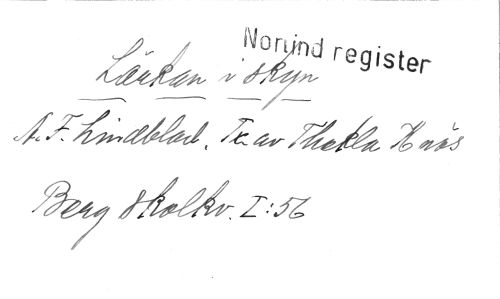 Norlind register
Lärkan i skyn
A. F. Lindblad. Tx. av Thekla Knös
Berg Skolkv. I:56